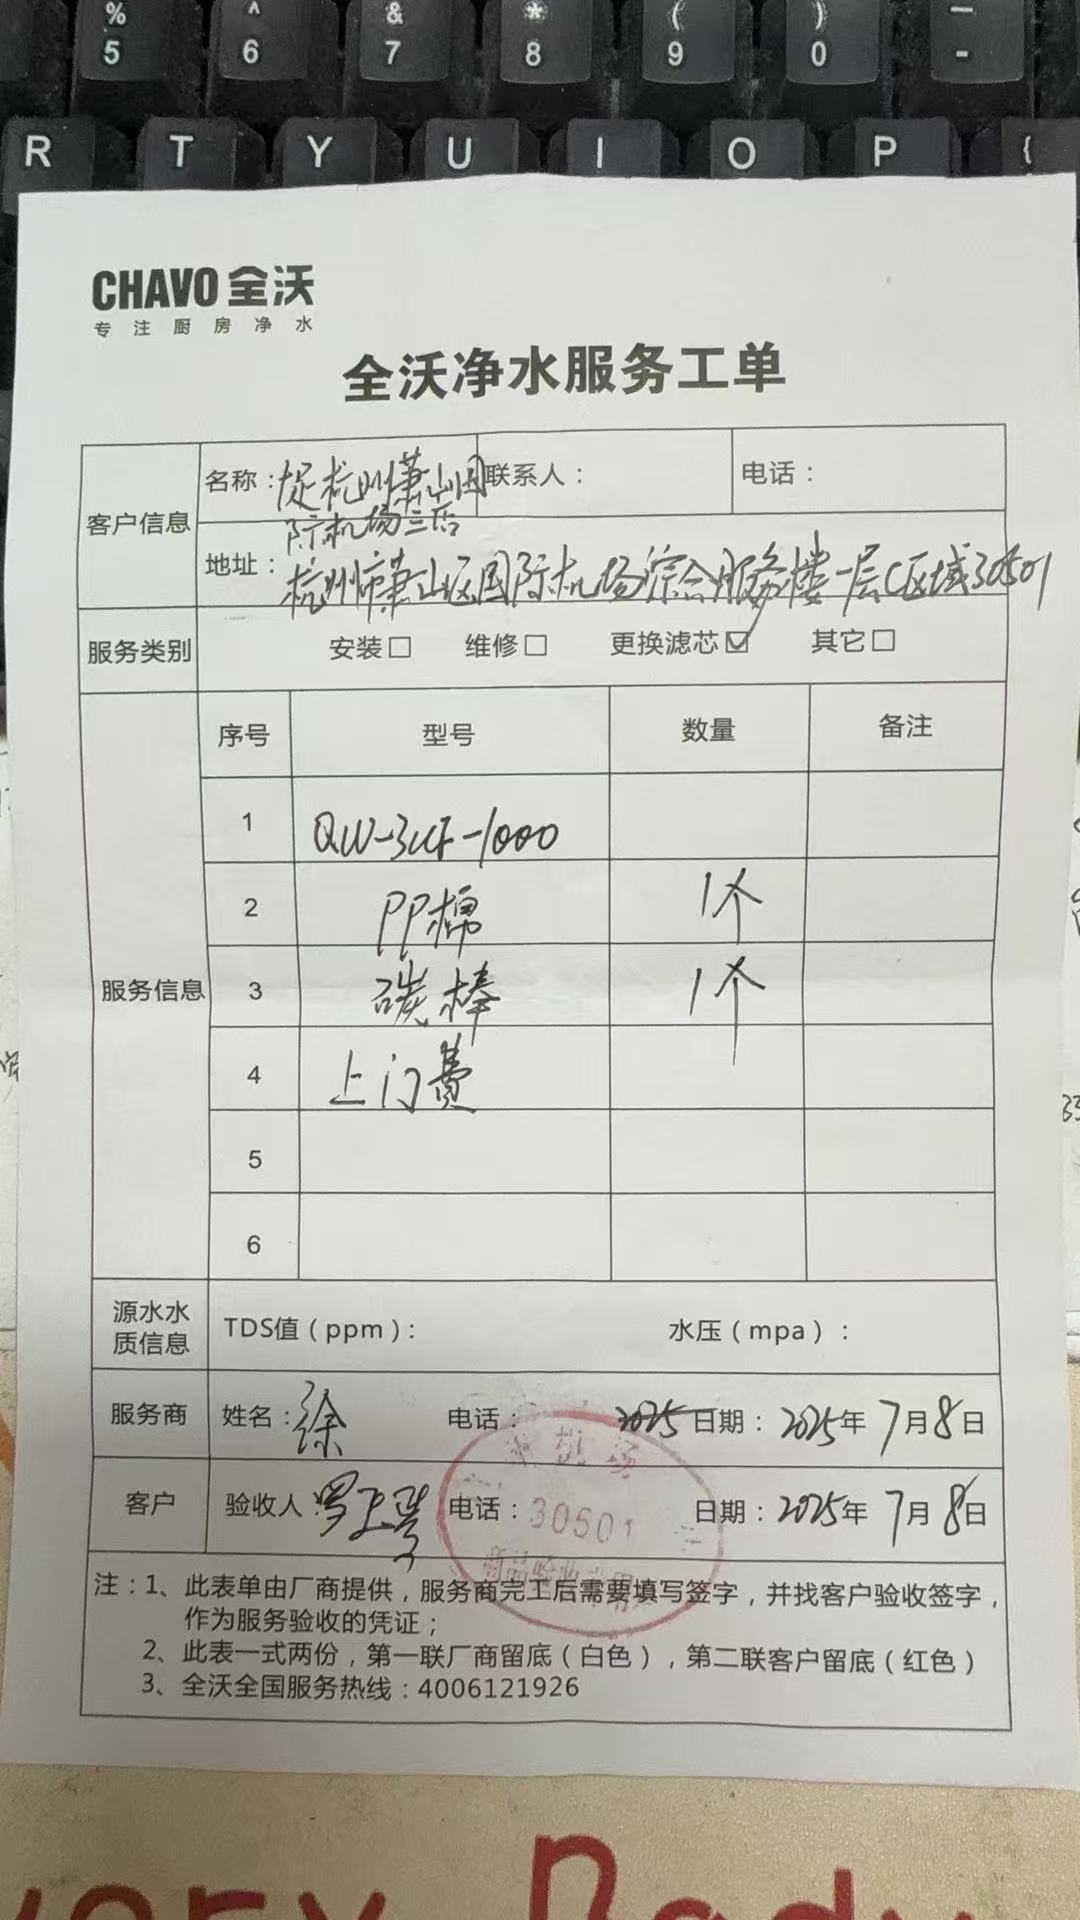 % 5 ^ 6 & 7 * 8 ( 9 ) 0 — -
R T Y U I O P {
CHAVO 全沃
专注厨房净水
全沃净水服务工单
客户信息
名称：杭州萧山国
际机场三店
联系人：
电话：
地址：杭州市萧山区国际机场综合服务楼一层C区域30501
服务类别 安装□ 维修□ 更换滤芯☑ 其它□
服务信息
序号 型号 数量 备注
1 QW-3UF-1000
2 PP棉 1个
3 碳棒 1个
4 上门费
5
6
源水水质信息 TDS值（ppm）： 水压（mpa）：
服务商 姓名：徐 电话： 2025 日期：2025年7月8日
客户 验收人： 电话： 日期：2025年7月8日
机场
30501
商品验收专用
注：1、此表单由厂商提供，服务商完工后需要填写签字，并找客户验收签字，
作为服务验收的凭证；
2、此表一式两份，第一联厂商留底（白色），第二联客户留底（红色）
3、全沃全国服务热线：4006121926